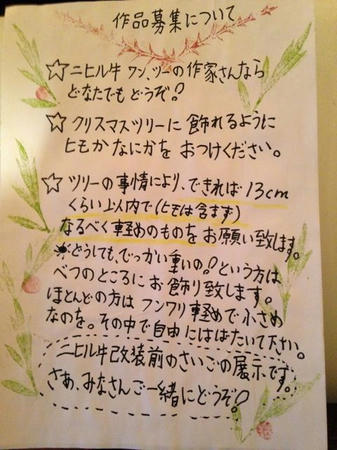 作品募集について
☆ニヒル牛 ワン、ツーの作家さんなら
どなたでもどうぞ!
☆クリスマスツリーに飾れるように
ヒモかなにかを おつけください。
☆ツリーの事情により、できれば13cm
くらい以内で(ヒモは含まず)
なるべく軽めのものをお願い致します。
※どうしても、でっかい重いの!という方は
べつのところにお飾り致します。
ほとんどの方は フンワリ軽めで小さめ
なのを。その中で自由にはばたいて下さい。
ニヒル牛改装前のさいごの展示です。
さあ、みなさんご一緒にどうぞ!